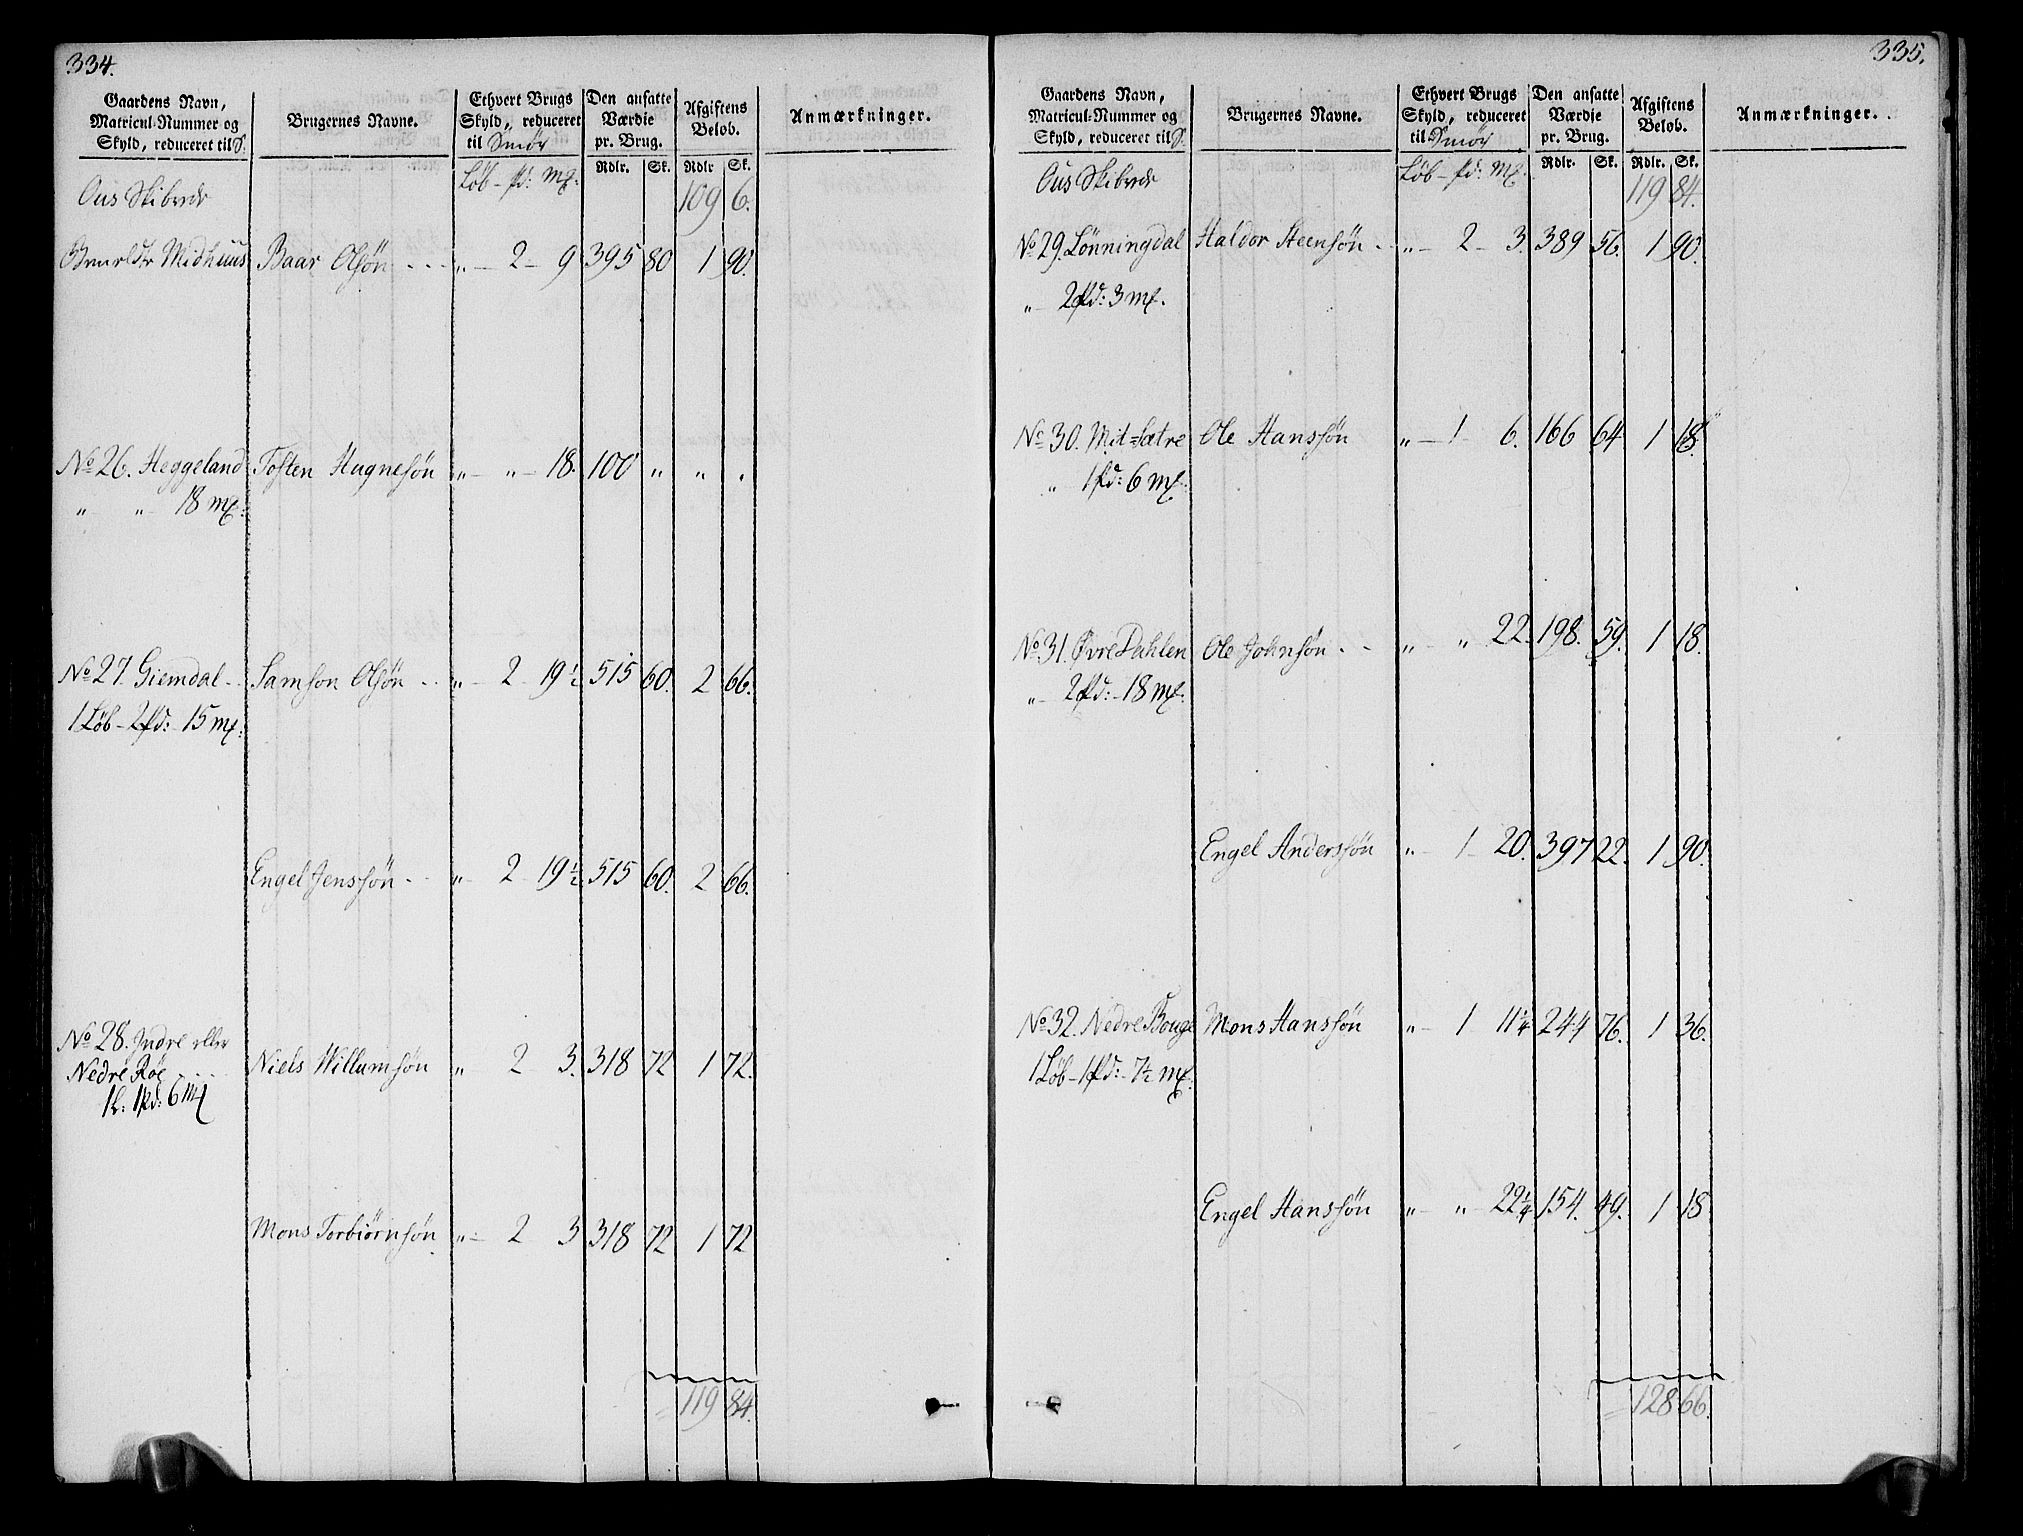 334.
Gaardens Navn, Matricul-Nummer og Skyld, reduceret til S. | Brugernes Navne. | Ethvert Brugs Skyld, reduceret til Smör | Den ansatte Værdie pr. Brug. | Afgiftens Beløb. | Anmærkninger.
Løb - pd: mk: | Rdlr. | Sk. | Rdlr | Sk.
Ous Skibrede 109 6.
Midhuus Baar Olsøn - - - „ - 2 - 9 395 80 1 90.
No 26. Heggeland Tosten Hugnesøn „ - „ - 18. 100 „ „ „
„ „ 18 mk:
No 27. Giemdal - - Samson Olsøn - - „ - 2 - 19½ 515 60. 2 66.
1 Løb - 2 pd: - 15 mk:
Engel Jenssøn - - „ - 2 - 19½ 515 60. 2 66.
No 28. Indre eller
Nedre Røe - - - Niels Willumsøn „ 2 3. 318 72 1 72.
1 L: 1 pd: 6 mk
Mons Torbiørnsøn „ - 2 3 318 72 1 72
119 84.
335.
Gaardens Navn, Matricul-Nummer og Skyld, reduceret til S. | Brugernes Navne. | Ethvert Brugs Skyld, reduceret til Smör | Den ansatte Værdie pr. Brug. | Afgiftens Beløb. | Anmærkninger.
Løb - pd: mk: | Rdlr. | Sk. | Rdlr. | Sk.
Ous Skibrede 119 84.
No 29. Lønningdal Haldor Steensøn - - „ - 2 - 3. 389 56. 1 90.
„ - 2 pd: 3 mk.
No 30. Mit=sætre Ole Hanssøn „ - 1 - 6. 166 64 1 18.
„ 1 pd: 6 mk:
No 31. Øvre Dahlen Ole Johnsøn - - „ - „ 22 - 198. 59. 1 18.
„ - 2 pd: - 18 mk:
Engel Anderssøn „ - 1 - 20. 397 22. 1 90.
No 32. Nedre Bouge Mons Hanssøn „ - 1 11¼ 244 76. 1 36.
1 Løb - 1 pd: - 7½ mk:
Engel Hanssøn „ - „ - 22¼ 154. 49. 1 18.
128 66.